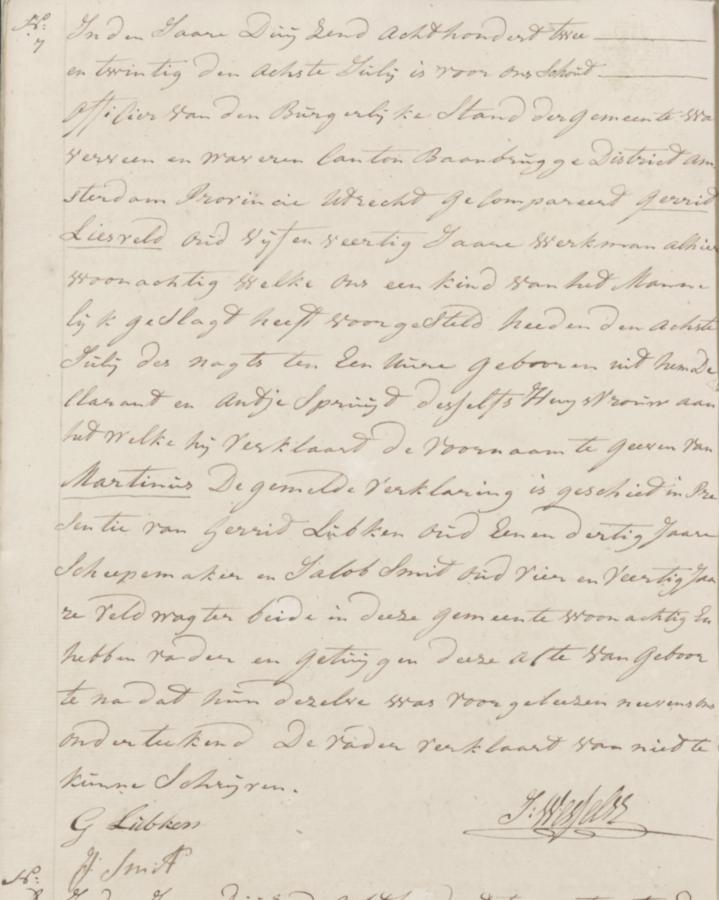 No:
7
In den Jaare Duijzend achthondert twee
en twintig den achste Julij is voor ons Schout
offisier van den Burgerlijke Stand der gemeente Wa
verveen en waveren Canton Baanbrugge District Am
sterdam Provincie Utrecht gecompareerd Gerrid
Liesveld oud vijf en veertig Jaare werkman alhier
woonachtig welke ons een kind van het Manne
lijk geslagt heeft voorgesteld heeden den achste
Julij des nagts ten Een Uure gebooren uit hem De
Clarant en Antje Spruijt desselfs Huysvrouw aan
het welke hij verklaard de voornaam te geeven van
Martinus De gemelde verklaring is geschied in Pre
sentie van Gerrid Lubken oud Eenendertig Jaare
Scheepemaker en Jakob Smit oud vier en Veertig Jaa
re veldwagter beide in deeze gemeente woonachtig En
hebben vader en getuijgen deeze acte van geboor
te na dat hun dezelve was voorgeleezen neevens ons
onderteekend De vader verklaard van niet te
kunne Schrijven.
G Lubken
J: Wessels
J: Smit
No:
8